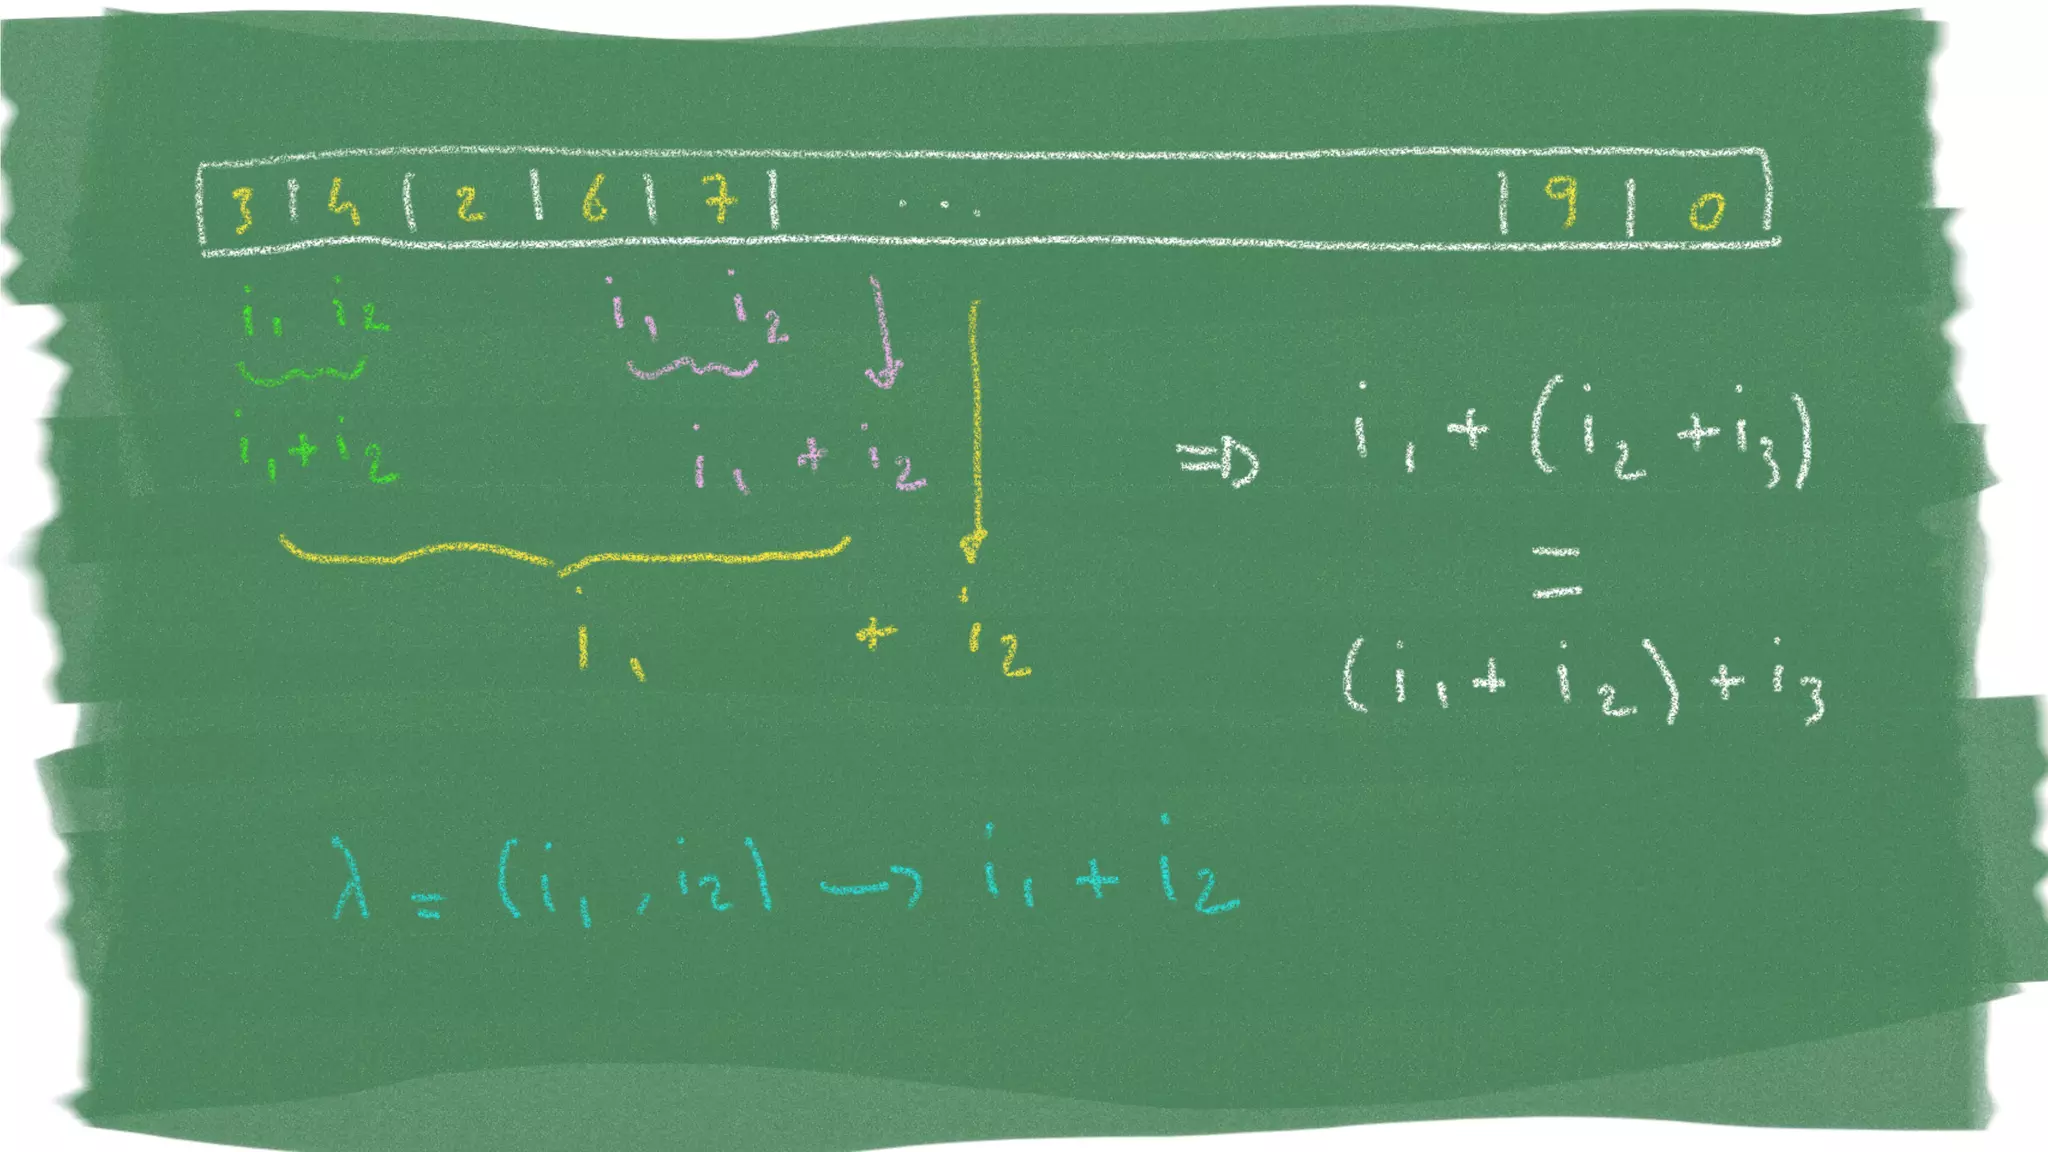 3 | 4 | 2 | 6 | 7 | ... | 9 | 0
i₁ i₂ i₁ i₂
i₁+i₂ i₁ + i₂
i₁ + i₂
=> i₁ + (i₂ + i₃)
=
(i₁ + i₂) + i₃
λ = (i₁, i₂) → i₁ + i₂